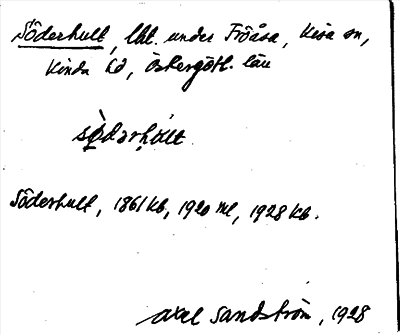 Söderhult, lht. under Fröåsa, Kisa sn,
Kinda hd, Östergötl. län
sǫ̀dərhúlt
Söderhult, 1861 kb, 1920 ml, 1928 kb.
Axel Sandström, 1928